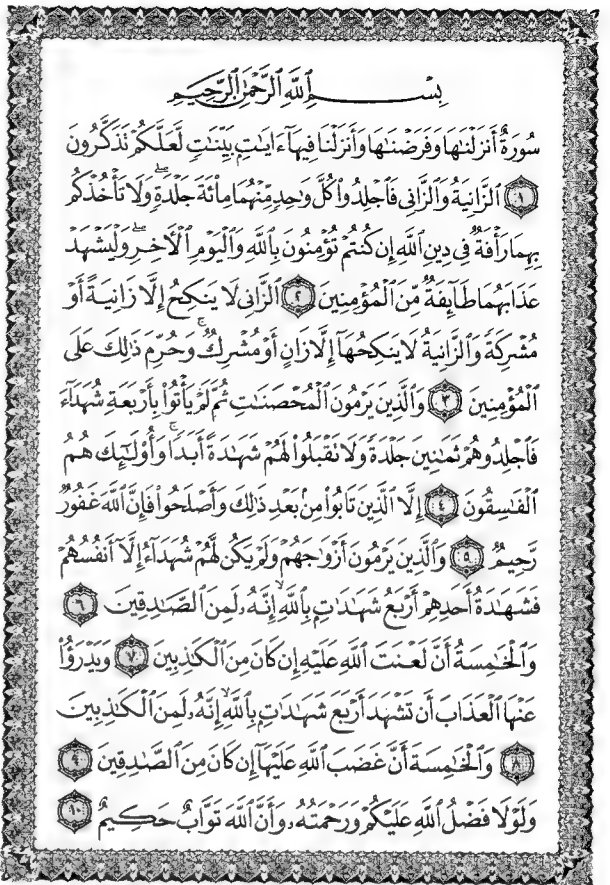 بِسْمِ اللَّهِ الرَّحْمَٰنِ الرَّحِيمِ
سُورَةٌ أَنزَلْنَٰهَا وَفَرَضْنَٰهَا وَأَنزَلْنَا فِيهَآ ءَايَٰتٍۭ بَيِّنَٰتٍ لَّعَلَّكُمْ تَذَكَّرُونَ
١ ٱلزَّانِيَةُ وَٱلزَّانِى فَٱجْلِدُوا۟ كُلَّ وَٰحِدٍ مِّنْهُمَا مِا۟ئَةَ جَلْدَةٍ ۖ وَلَا تَأْخُذْكُم
بِهِمَا رَأْفَةٌ فِى دِينِ ٱللَّهِ إِن كُنتُمْ تُؤْمِنُونَ بِٱللَّهِ وَٱلْيَوْمِ ٱلْـَٔاخِرِ ۖ وَلْيَشْهَدْ
عَذَابَهُمَا طَآئِفَةٌ مِّنَ ٱلْمُؤْمِنِينَ ٢ ٱلزَّانِى لَا يَنكِحُ إِلَّا زَانِيَةً أَوْ
مُشْرِكَةً وَٱلزَّانِيَةُ لَا يَنكِحُهَآ إِلَّا زَانٍ أَوْ مُشْرِكٌ ۚ وَحُرِّمَ ذَٰلِكَ عَلَى
ٱلْمُؤْمِنِينَ ٣ وَٱلَّذِينَ يَرْمُونَ ٱلْمُحْصَنَٰتِ ثُمَّ لَمْ يَأْتُوا۟ بِأَرْبَعَةِ شُهَدَآءَ
فَٱجْلِدُوهُمْ ثَمَٰنِينَ جَلْدَةً وَلَا تَقْبَلُوا۟ لَهُمْ شَهَٰدَةً أَبَدًا ۚ وَأُو۟لَٰٓئِكَ هُمُ
ٱلْفَٰسِقُونَ ٤ إِلَّا ٱلَّذِينَ تَابُوا۟ مِنۢ بَعْدِ ذَٰلِكَ وَأَصْلَحُوا۟ فَإِنَّ ٱللَّهَ غَفُورٌ
رَّحِيمٌ ٥ وَٱلَّذِينَ يَرْمُونَ أَزْوَٰجَهُمْ وَلَمْ يَكُن لَّهُمْ شُهَدَآءُ إِلَّآ أَنفُسُهُمْ
فَشَهَٰدَةُ أَحَدِهِمْ أَرْبَعُ شَهَٰدَٰتٍۭ بِٱللَّهِ ۙ إِنَّهُۥ لَمِنَ ٱلصَّٰدِقِينَ ٦
وَٱلْخَٰمِسَةُ أَنَّ لَعْنَتَ ٱللَّهِ عَلَيْهِ إِن كَانَ مِنَ ٱلْكَٰذِبِينَ ٧ وَيَدْرَؤُا۟
عَنْهَا ٱلْعَذَابَ أَن تَشْهَدَ أَرْبَعَ شَهَٰدَٰتٍۭ بِٱللَّهِ ۙ إِنَّهُۥ لَمِنَ ٱلْكَٰذِبِينَ
٨ وَٱلْخَٰمِسَةَ أَنَّ غَضَبَ ٱللَّهِ عَلَيْهَآ إِن كَانَ مِنَ ٱلصَّٰدِقِينَ ٩
وَلَوْلَا فَضْلُ ٱللَّهِ عَلَيْكُمْ وَرَحْمَتُهُۥ وَأَنَّ ٱللَّهَ تَوَّابٌ حَكِيمٌ ١٠